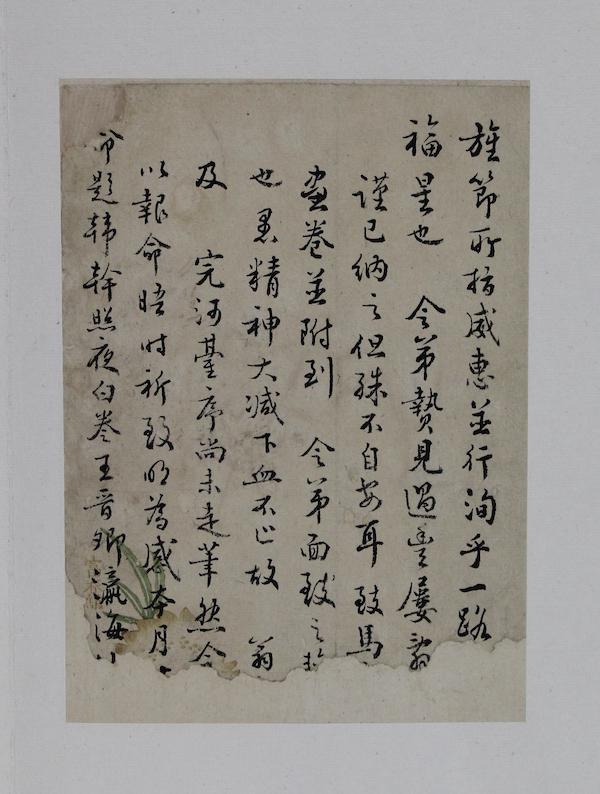 旌節所指威惠並行洵乎一路
福星也　令弟贄見過豐屢辭
謹已納之但殊不自安耳致馬
畫卷並附到　令弟面致之
也愚精神大減下血不止故　翁
及　完河臺序尚未走筆然今
以報命晤時祈致明為感本月
命題韓幹照夜白卷王晉卿瀛海